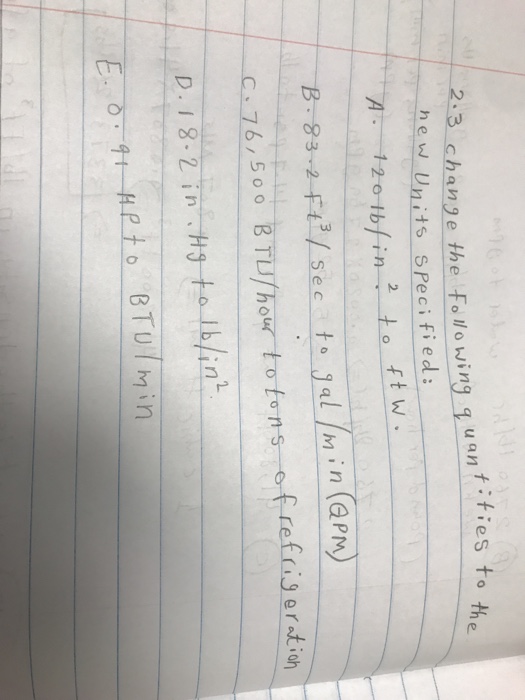 2.3 change the following quantities to the
new Units specified:
A. 120 lb/in.² to ftw.
B. 83.2 ft³/sec to gal/min (GPM)
C. 76,500 BTU/hour to tons of refrigeration
D. 18.2 in. Hg to lb/in².
E. 0.91 HP to BTU/min